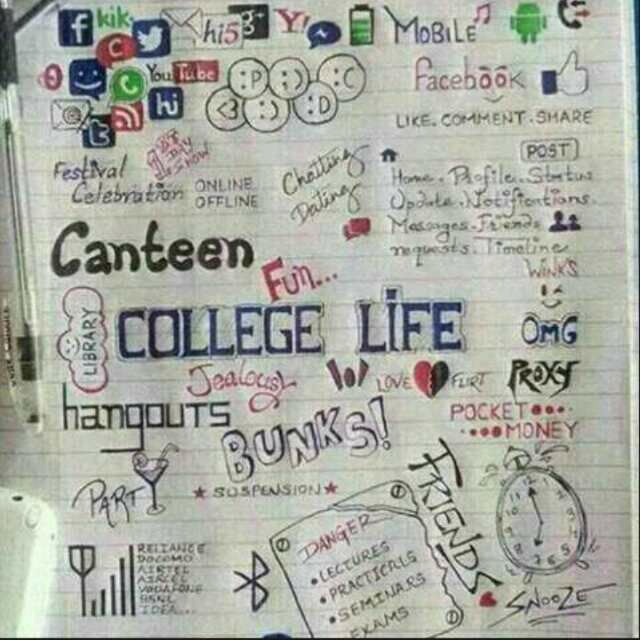 f kik hi5 g+ Y! MOBILE
You Tube :P ;) :C facebook
<3 :) :D
@ hi LIKE. COMMENT. SHARE
t
POST
Festival Celebration 1st DAY 1st SHOW
ONLINE
OFFLINE
Chatting
Dating
Home. Profile. Status
Update. Notifications.
Messages. Friends
requests. Timeline
WINKS
Canteen
Fun...
LIBRARY COLLEGE LIFE OMG
Jealousy LOVE FLIRT PROXY
hangouts BUNKS! POCKET
MONEY
PARTY
SUSPENSION
FRIENDS
RELIANCE
DOCOMO
AIRTEL
AIRCEL
VODAFONE
BSNL
IDEA...
DANGER
• LECTURES
• PRACTICALS
• SEMINARS
EXAMS
SNOOZE